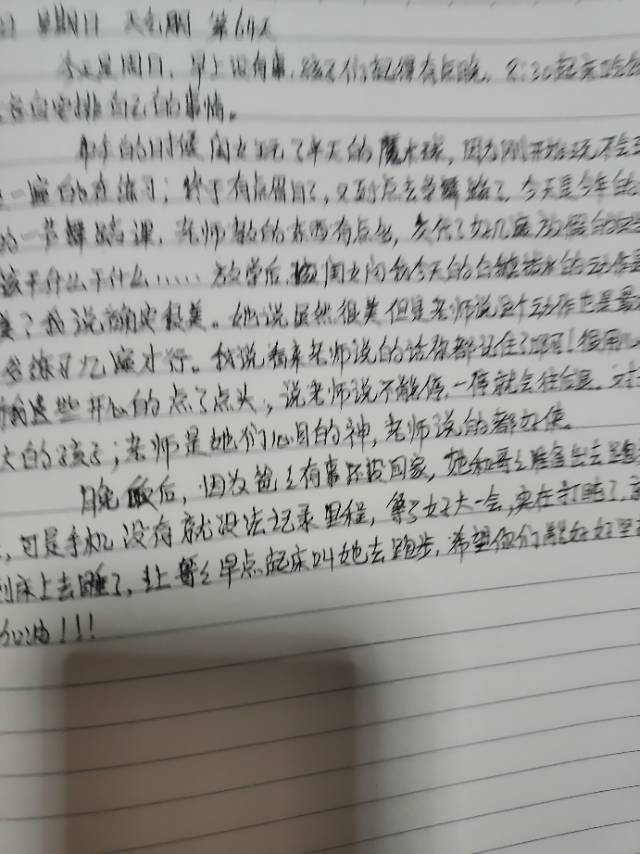 星期日 天气晴 第611天
今天是周日,早上没有事,孩子们起得有点晚。8:30起来吃
各自安排自己的事情。
的时候闺女玩了半天的魔术球,因为刚开始玩不会
一遍的在练习;终于有点眉目了,又到点去学舞蹈了。今天是今年的
的一节舞蹈课,老师教的东西有点多,
该干什么干什么……放学后,闺女问我今天的白 的动作
美?我说确实很美。她说虽然很美但是老师说这个动作也是最
多练习几遍才行。我说看来老师说的话你都记住了
开心的点了点头,说老师说不能停,一停就会往后退。
大的孩子;老师是她们心目的神,老师说的都好使。
晚饭后,因为爸爸有事还没回家,她和哥哥准备出去跑
可是手机没有就没法记录里程,等了好大一会,实在打盹了,
到床上去睡了,让哥哥早点起床叫她去跑步,希望你们都好好坚
加油!!!